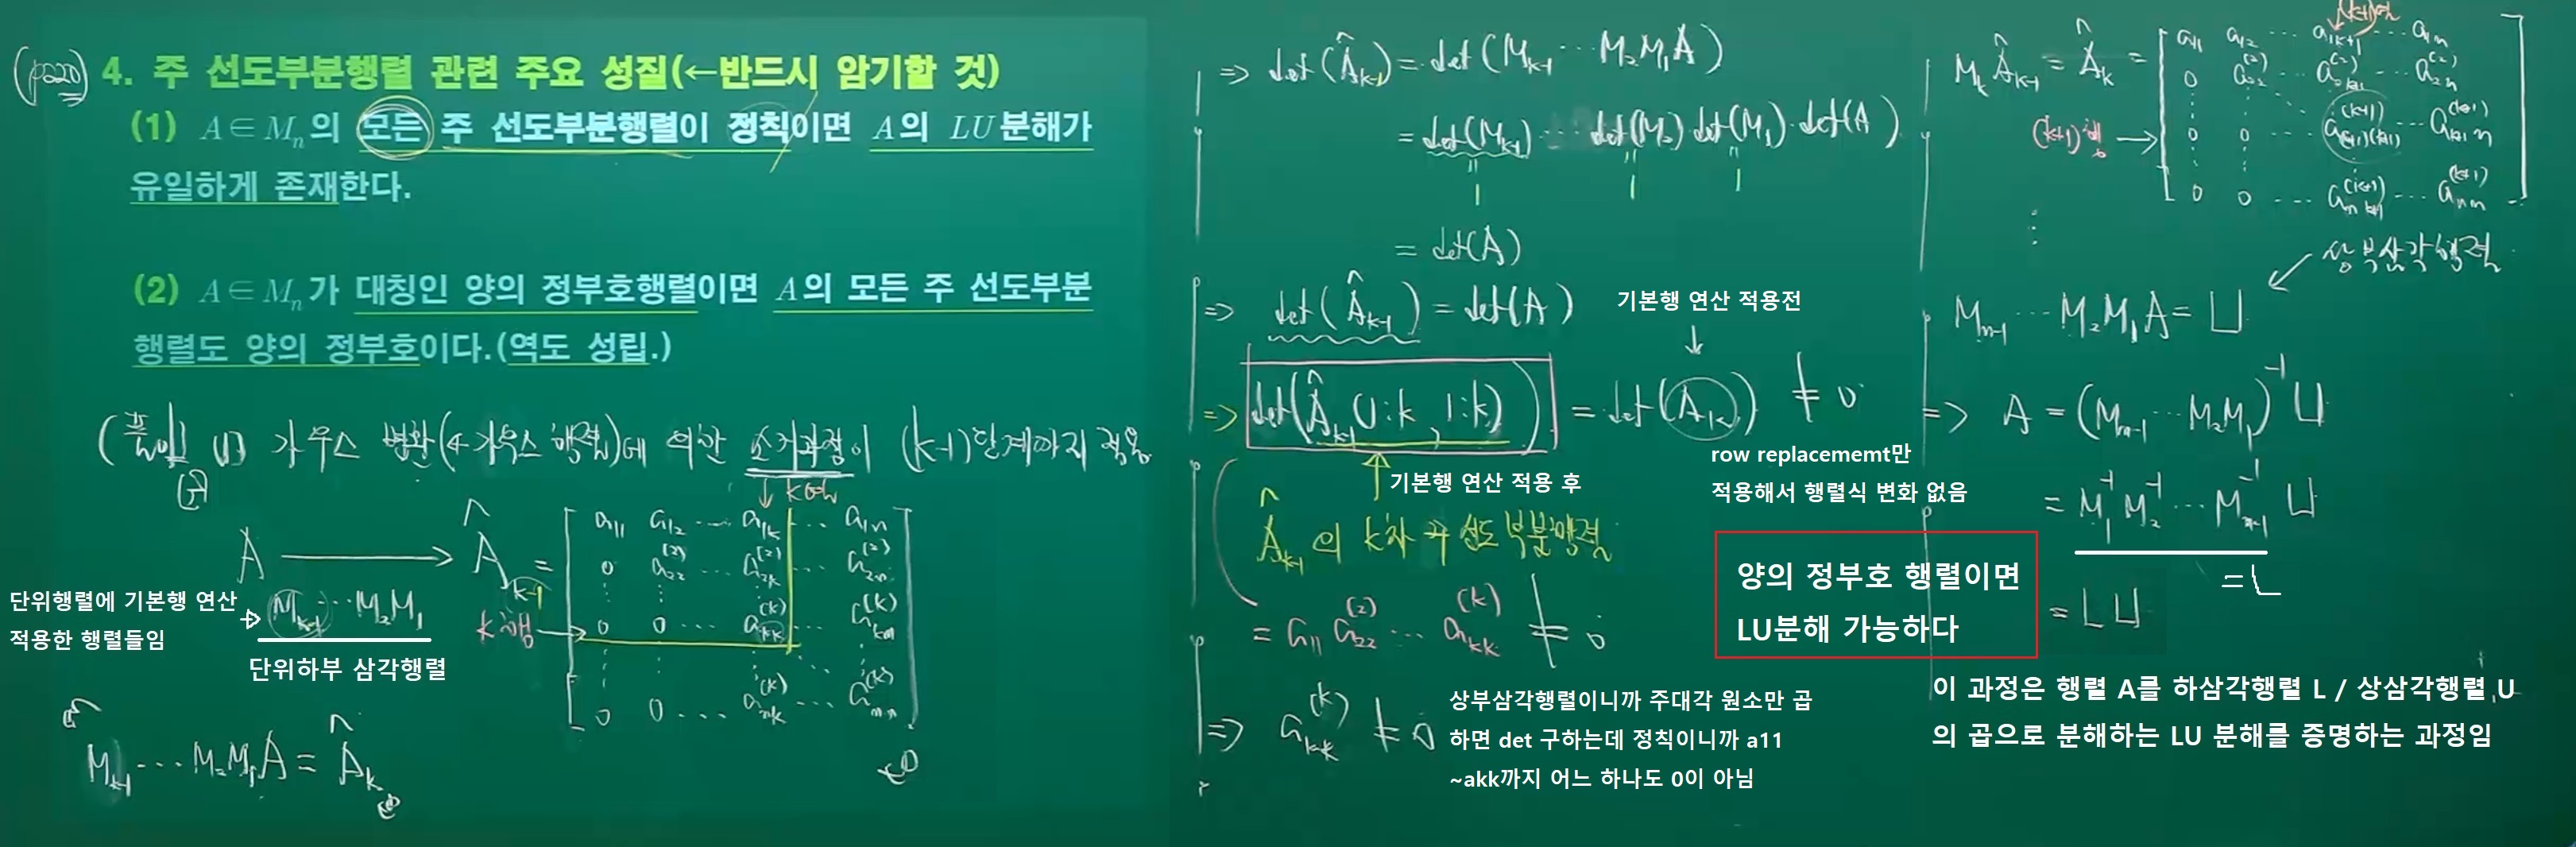 (p220) 4. 주 선도부분행렬 관련 주요 성질(←반드시 암기할 것)
(1) A∈Mₙ의 모든 주 선도부분행렬이 정칙이면 A의 LU분해가
유일하게 존재한다.
(2) A∈Mₙ가 대칭인 양의 정부호행렬이면 A의 모든 주 선도부분
행렬도 양의 정부호이다.(역도 성립.)
(1) 가우스 변환(←가우스 행렬)에 의한 소거과정이 (k-1)단계까지 적용
↓ k열
A → Â_{k-1} =
a₁₁ a₁₂ ⋯ a₁ₖ ⋯ a₁ₙ
0 a₂₂⁽²⁾ ⋯ a₂ₖ⁽²⁾ ⋯ a₂ₙ⁽²⁾
k행 → 0 0 ⋯ aₖₖ⁽ᵏ⁾ ⋯ aₖₙ⁽ᵏ⁾
0 0 ⋯ aₙₖ⁽ᵏ⁾ ⋯ aₙₙ⁽ᵏ⁾
M_{k-1} ⋯ M₂M₁
단위행렬에 기본행 연산
적용한 행렬들임
단위하부 삼각행렬
M_{k-1} ⋯ M₂M₁A = Â_k
=> det(Â_{k-1}) = det(M_{k-1} ⋯ M₂M₁A)
= det(M_{k-1}) ⋯ det(M₂) det(M₁) det(A)
1 1 1
= det(A)
=> det(Â_{k-1}) = det(A)
기본행 연산 적용전
↓
=> det(Â_{k-1}(1:k, 1:k)) = det(Aₖ) ≠ 0
기본행 연산 적용 후
row replacememt만
적용해서 행렬식 변화 없음
Â_{k-1}의 k차 주 선도 부분행렬
= a₁₁ a₂₂⁽²⁾ ⋯ aₖₖ⁽ᵏ⁾ ≠ 0
=> aₖₖ⁽ᵏ⁾ ≠ 0
상부삼각행렬이니까 주대각 원소만 곱
하면 det 구하는데 정칙이니까 a11
~akk까지 어느 하나도 0이 아님
(k+1)열
MₖÂ_{k-1} = Âₖ =
a₁₁ a₁₂ ⋯ a_{1k+1} ⋯ a₁ₙ
0 a₂₂⁽²⁾ ⋯ a_{2k+1}⁽²⁾ ⋯ a₂ₙ⁽²⁾
(k+1)행 → 0 0 ⋯ a_{(k+1)(k+1)}⁽ᵏ⁺¹⁾ ⋯ a_{k+1 n}⁽ᵏ⁺¹⁾
0 0 ⋯ a_{n k+1}⁽ᵏ⁺¹⁾ ⋯ aₙₙ⁽ᵏ⁺¹⁾
상부삼각행렬
M_{n-1} ⋯ M₂M₁A = U
=> A = (M_{n-1} ⋯ M₂M₁)⁻¹ U
= M₁⁻¹ M₂⁻¹ ⋯ M_{n-1}⁻¹ U
= L
= LU
양의 정부호 행렬이면
LU분해 가능하다
이 과정은 행렬 A를 하삼각행렬 L / 상삼각행렬 U
의 곱으로 분해하는 LU 분해를 증명하는 과정임